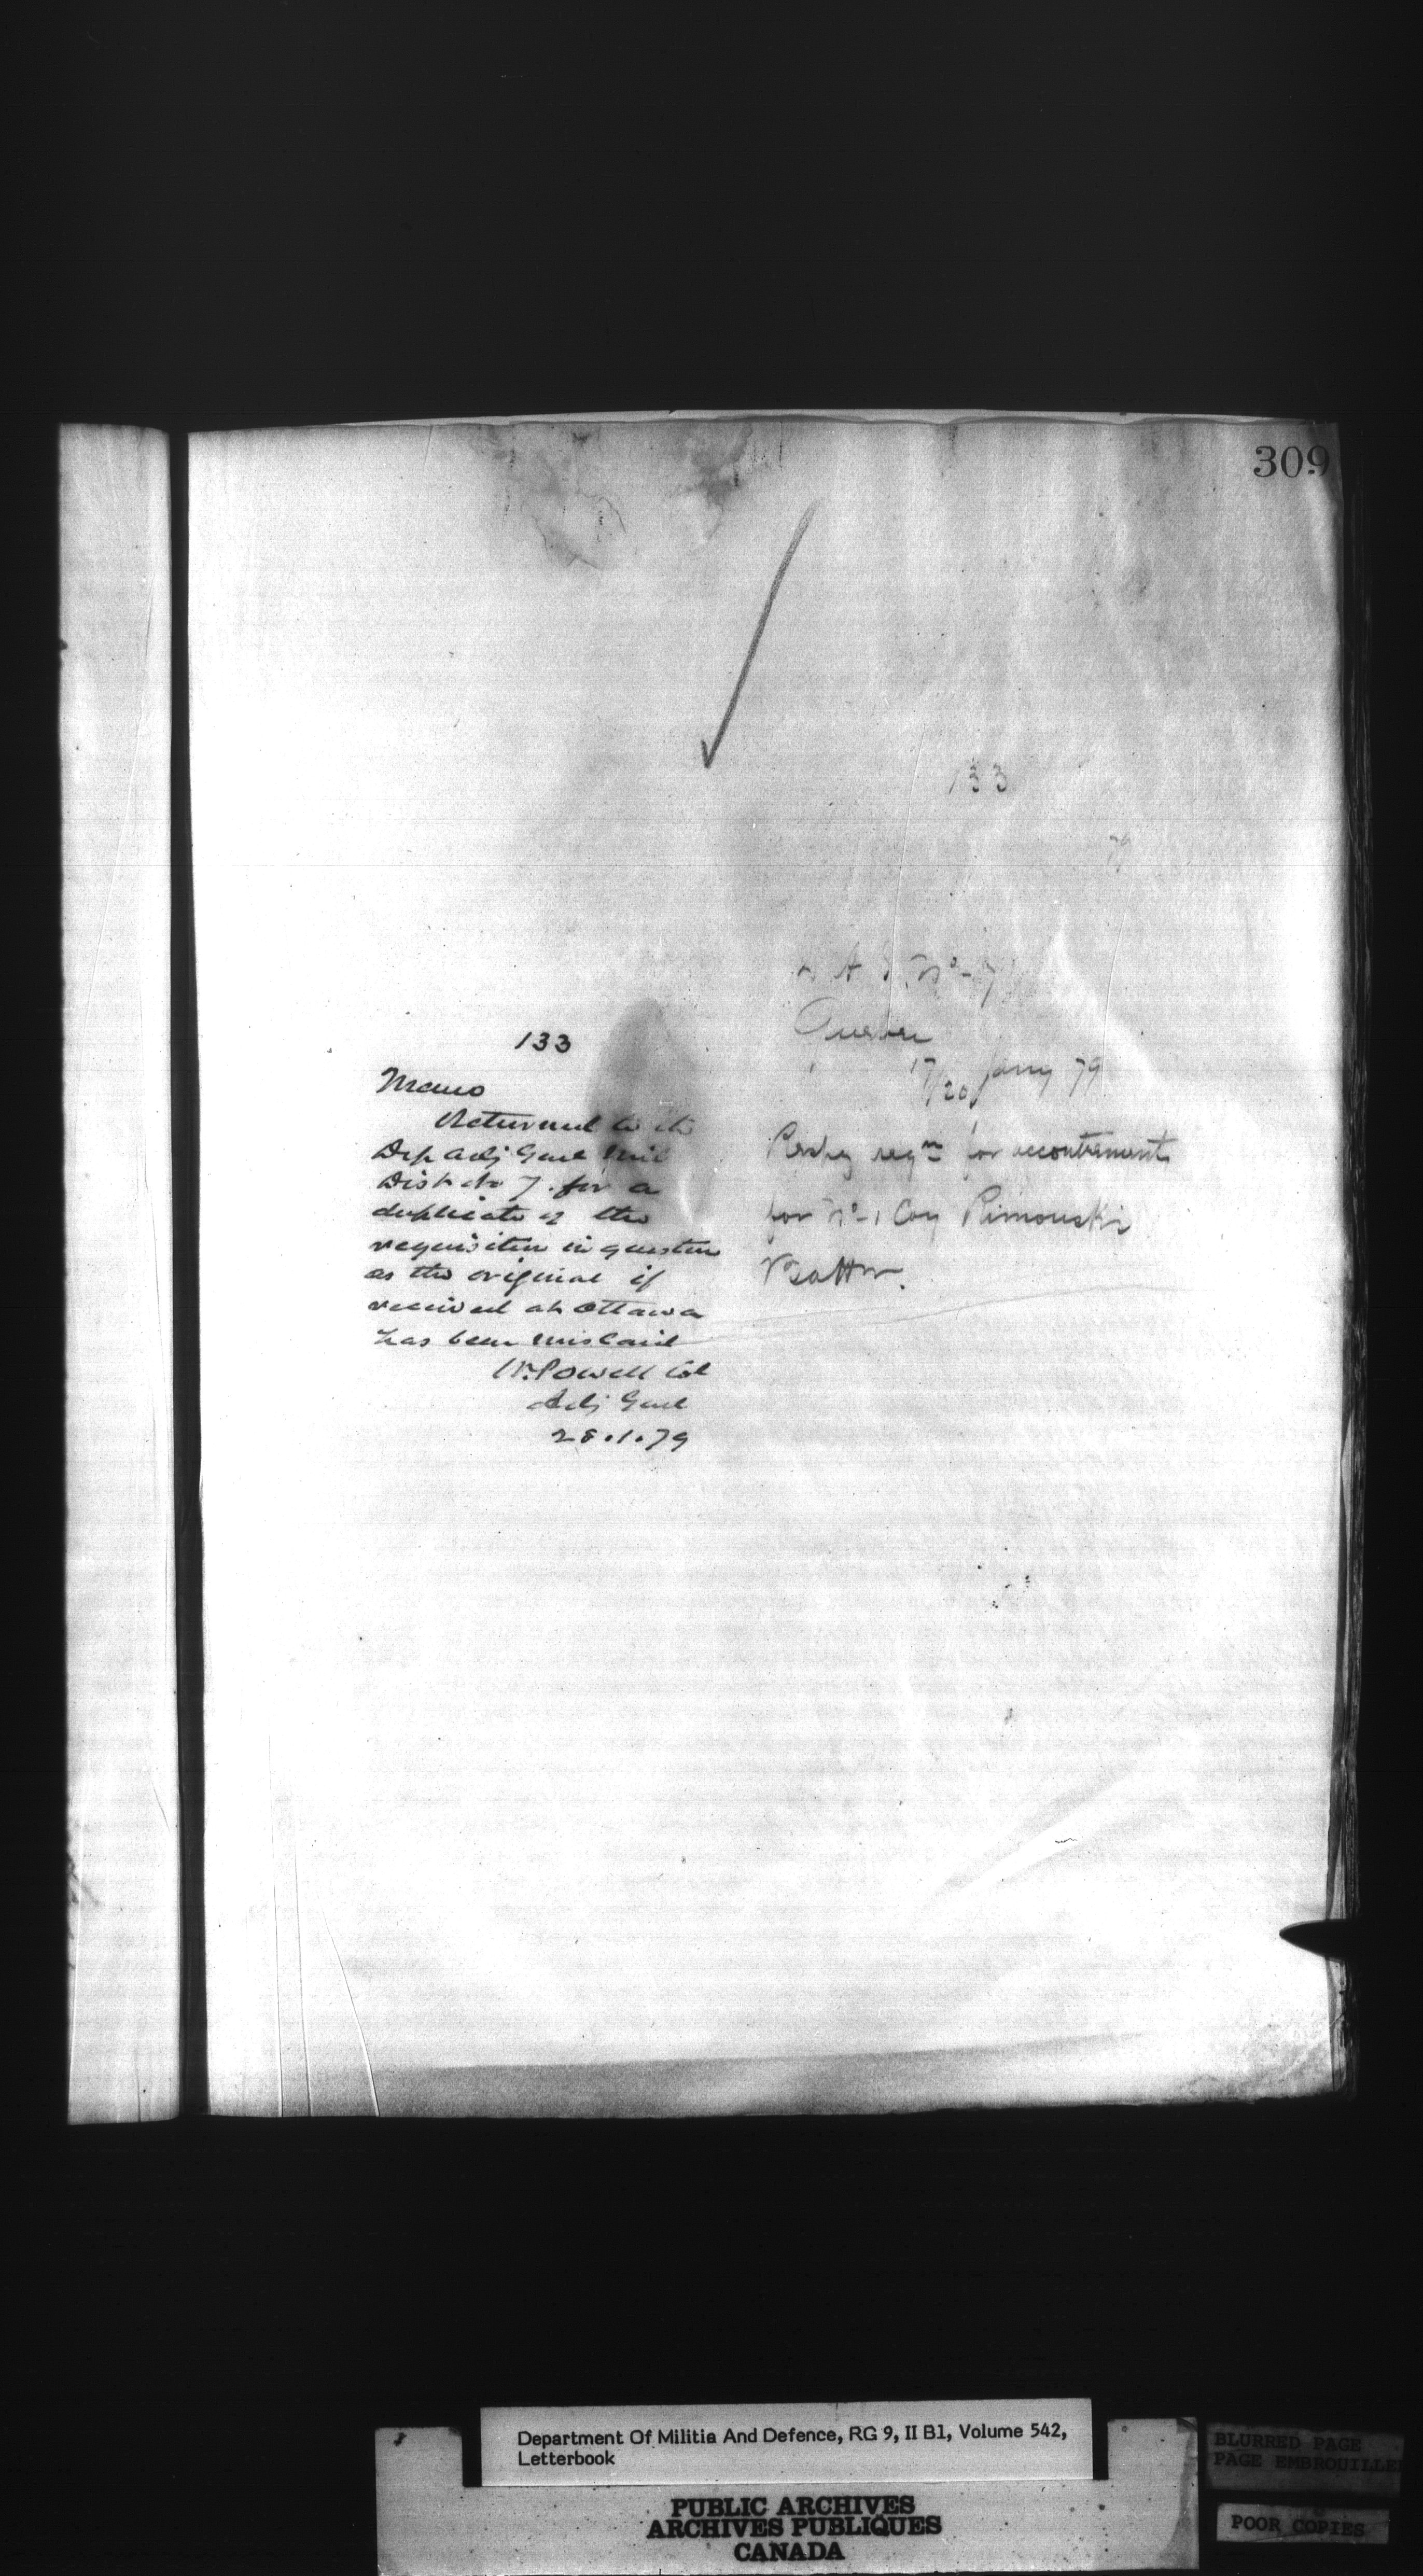 309
133
79
D A G. No- 7
Quebec
17/20 Jany 79
Respg reqn for accoutrements
for No- 1 Coy Rimouski
Battn.
133
Memo
Returned to the
Dep Adj Genl Mil
Dist No 7. for a
duplicate of the
requisition in question
as the original if
received at Ottawa
has been mislaid
W. Powell Col
Adj Genl
28.1.79
Department Of Militia And Defence, RG 9, II B1, Volume 542,
Letterbook
PUBLIC ARCHIVES
ARCHIVES PUBLIQUES
CANADA
BLURRED PAGE
PAGE EMBROUILLEE
POOR COPIES